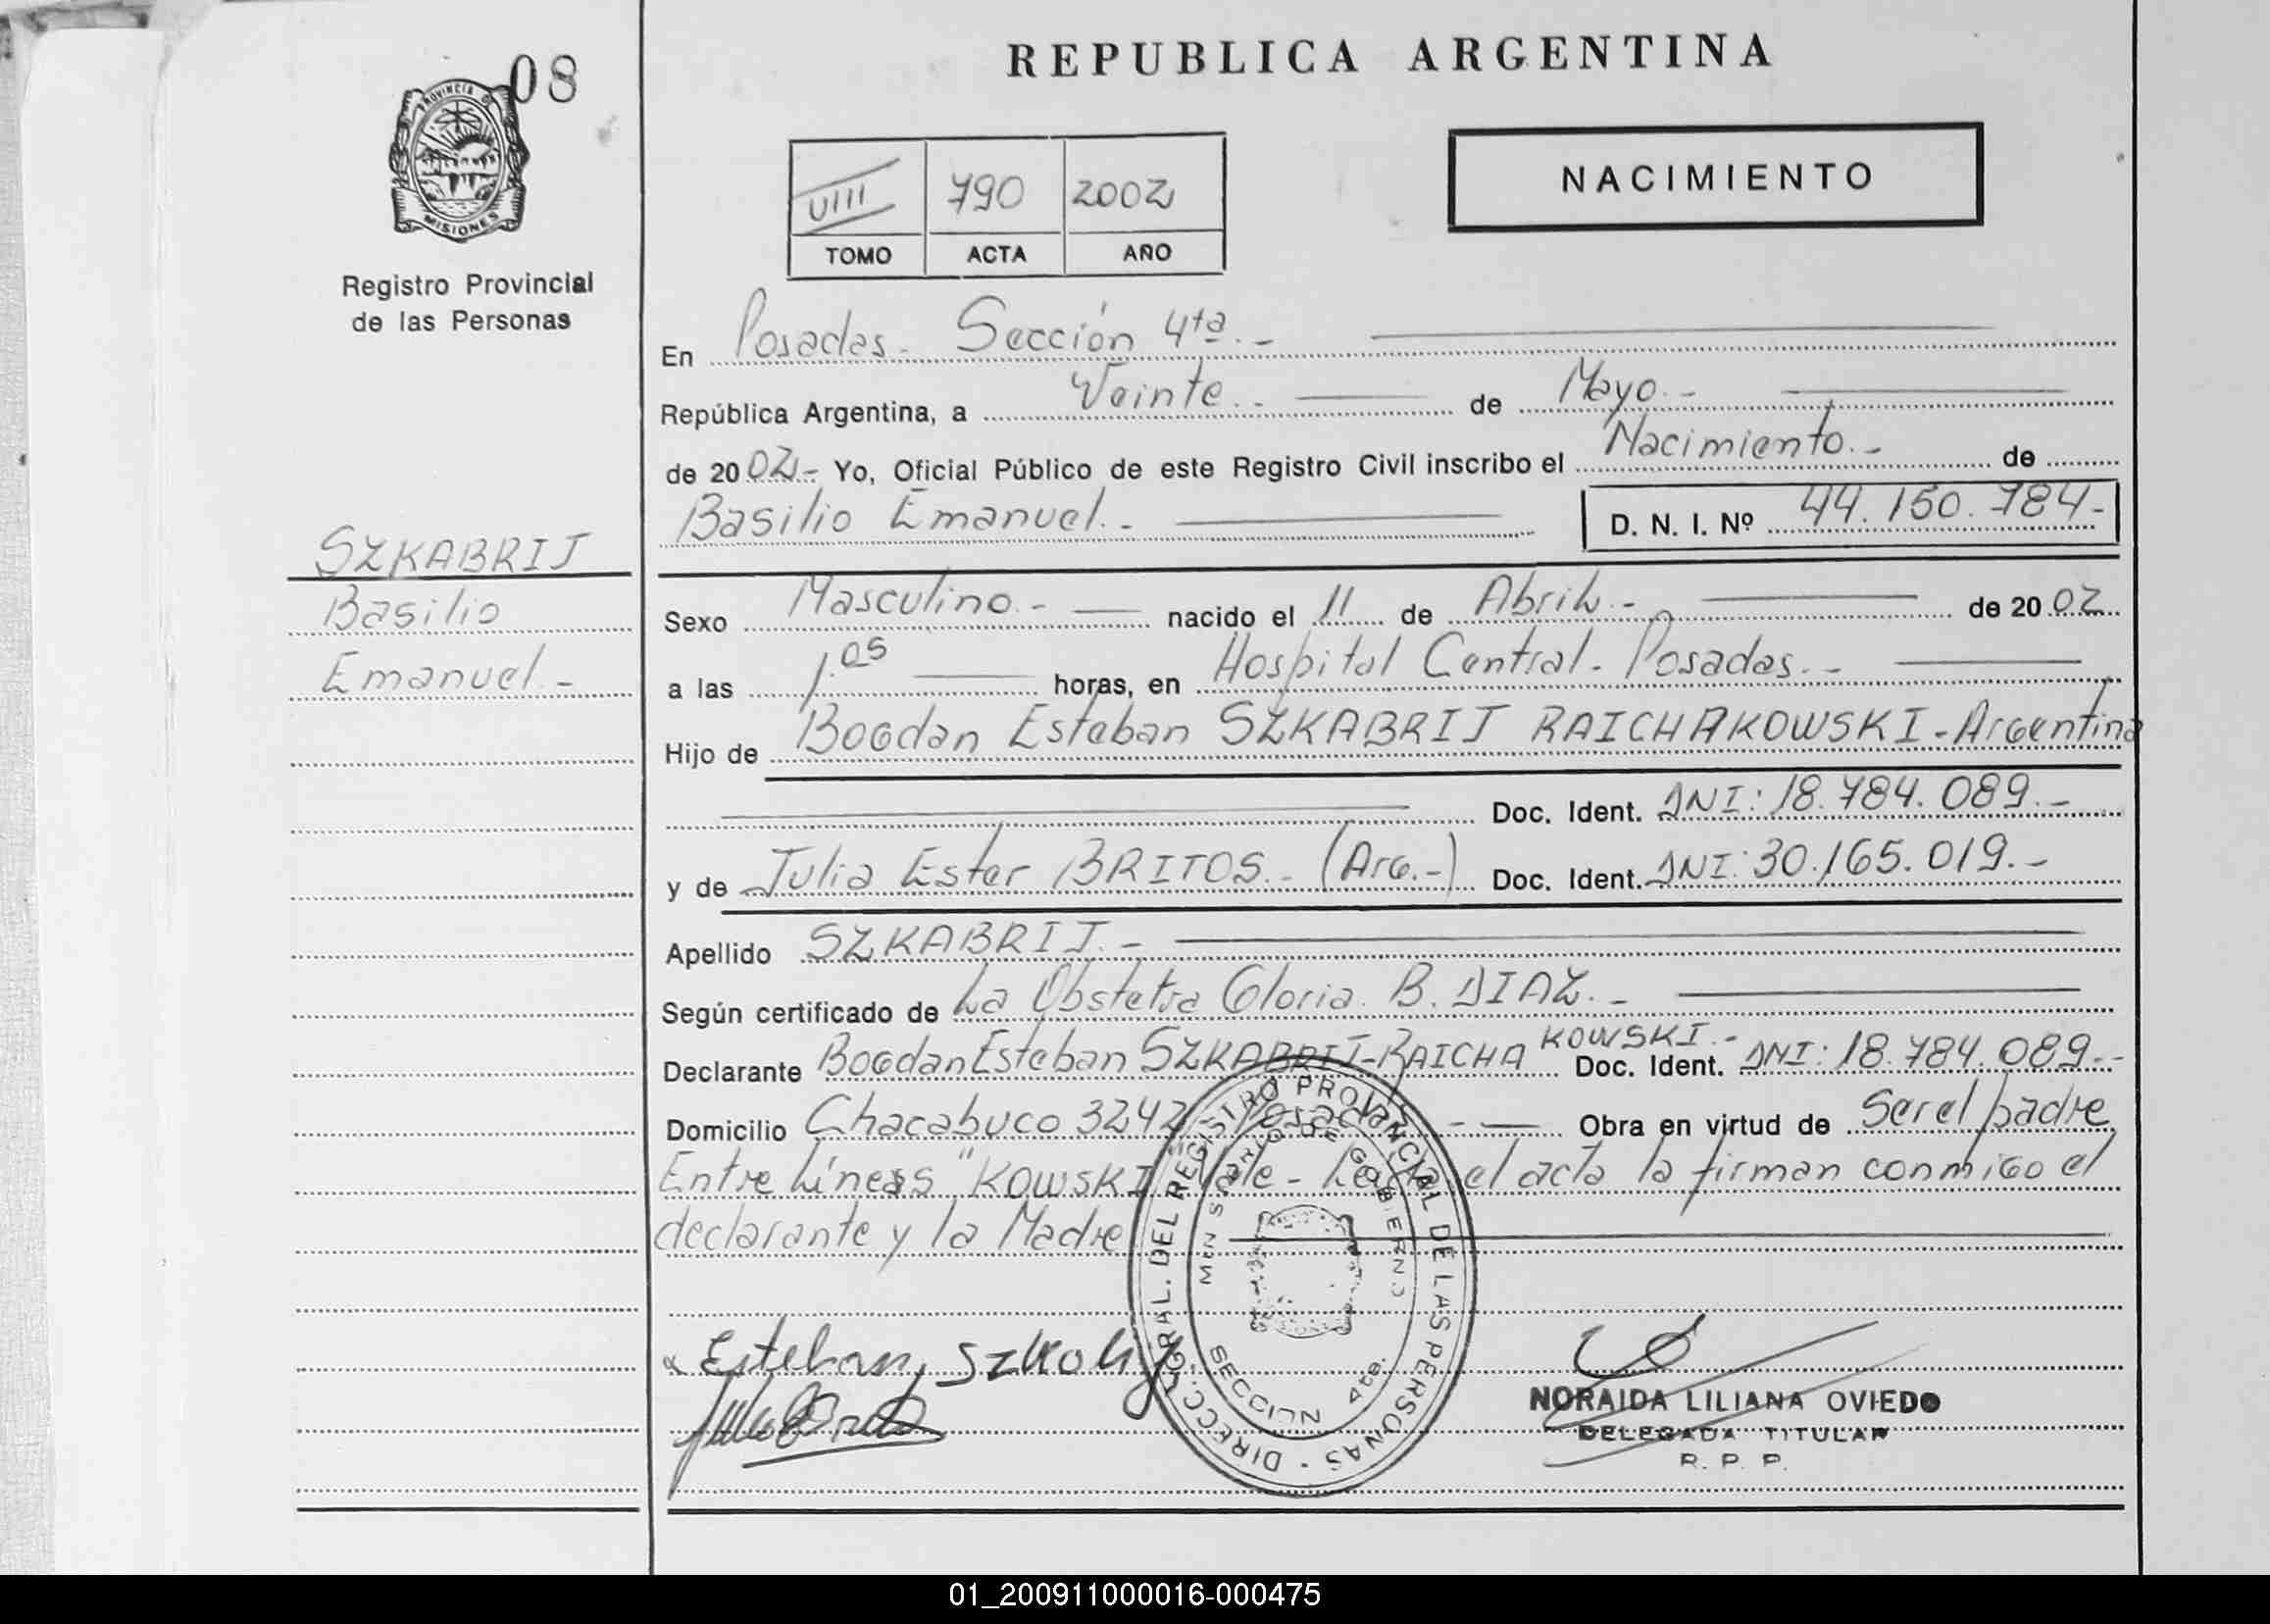 REPUBLICA ARGENTINA
08
PROVINCIA D
MISIONES
Registro Provincial
de las Personas
VIII 790 2002
TOMO ACTA AÑO
NACIMIENTO
En Posadas - Sección 4ta.-
República Argentina, a Veinte.- de Mayo.-
de 2002.- Yo, Oficial Público de este Registro Civil inscribo el Nacimiento.- de
Basilio Emanuel.- D. N. I. Nº 44.150.784-
SZKABRIJ
Basilio
Emanuel.-
Sexo Masculino.- nacido el 11 de Abril.- de 2002
a las 1.05 horas, en Hospital Central. Posadas.-
Hijo de Bogdan Esteban SZKABRIJ RAICHAKOWSKI - Argentina
Doc. Ident. DNI: 18.784.089.-
y de Julia Ester BRITOS.- (Arg.-) Doc. Ident. DNI: 30.165.019.-
Apellido SZKABRIJ.-
Según certificado de La Obstetra Gloria. B. DIAZ.-
Declarante Bogdan Esteban SZKABRIJ-RAICHA KOWSKI.- Doc. Ident. DNI: 18.784.089.-
Domicilio Chacabuco 3242 Posadas - Obra en virtud de Ser el padre
Entre Líneas "KOWSKI Vale - el acta la firman conmigo el
declarante y la Madre
DIRECC. GRAL. DEL REGISTRO PROVINCIAL DE LAS PERSONAS
DE GOBIERNO
SECCION 4ta.
Esteban
NORAIDA LILIANA OVIEDO
DELEGADA TITULAR
R. P. P.
01_200911000016-000475